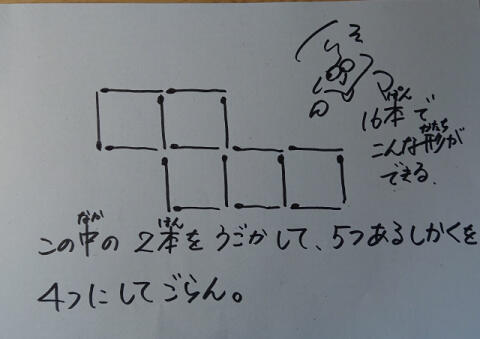 16本で
こんな形が
できる.
この中の2本をうごかして、5つあるしかくを
4つにしてごらん。